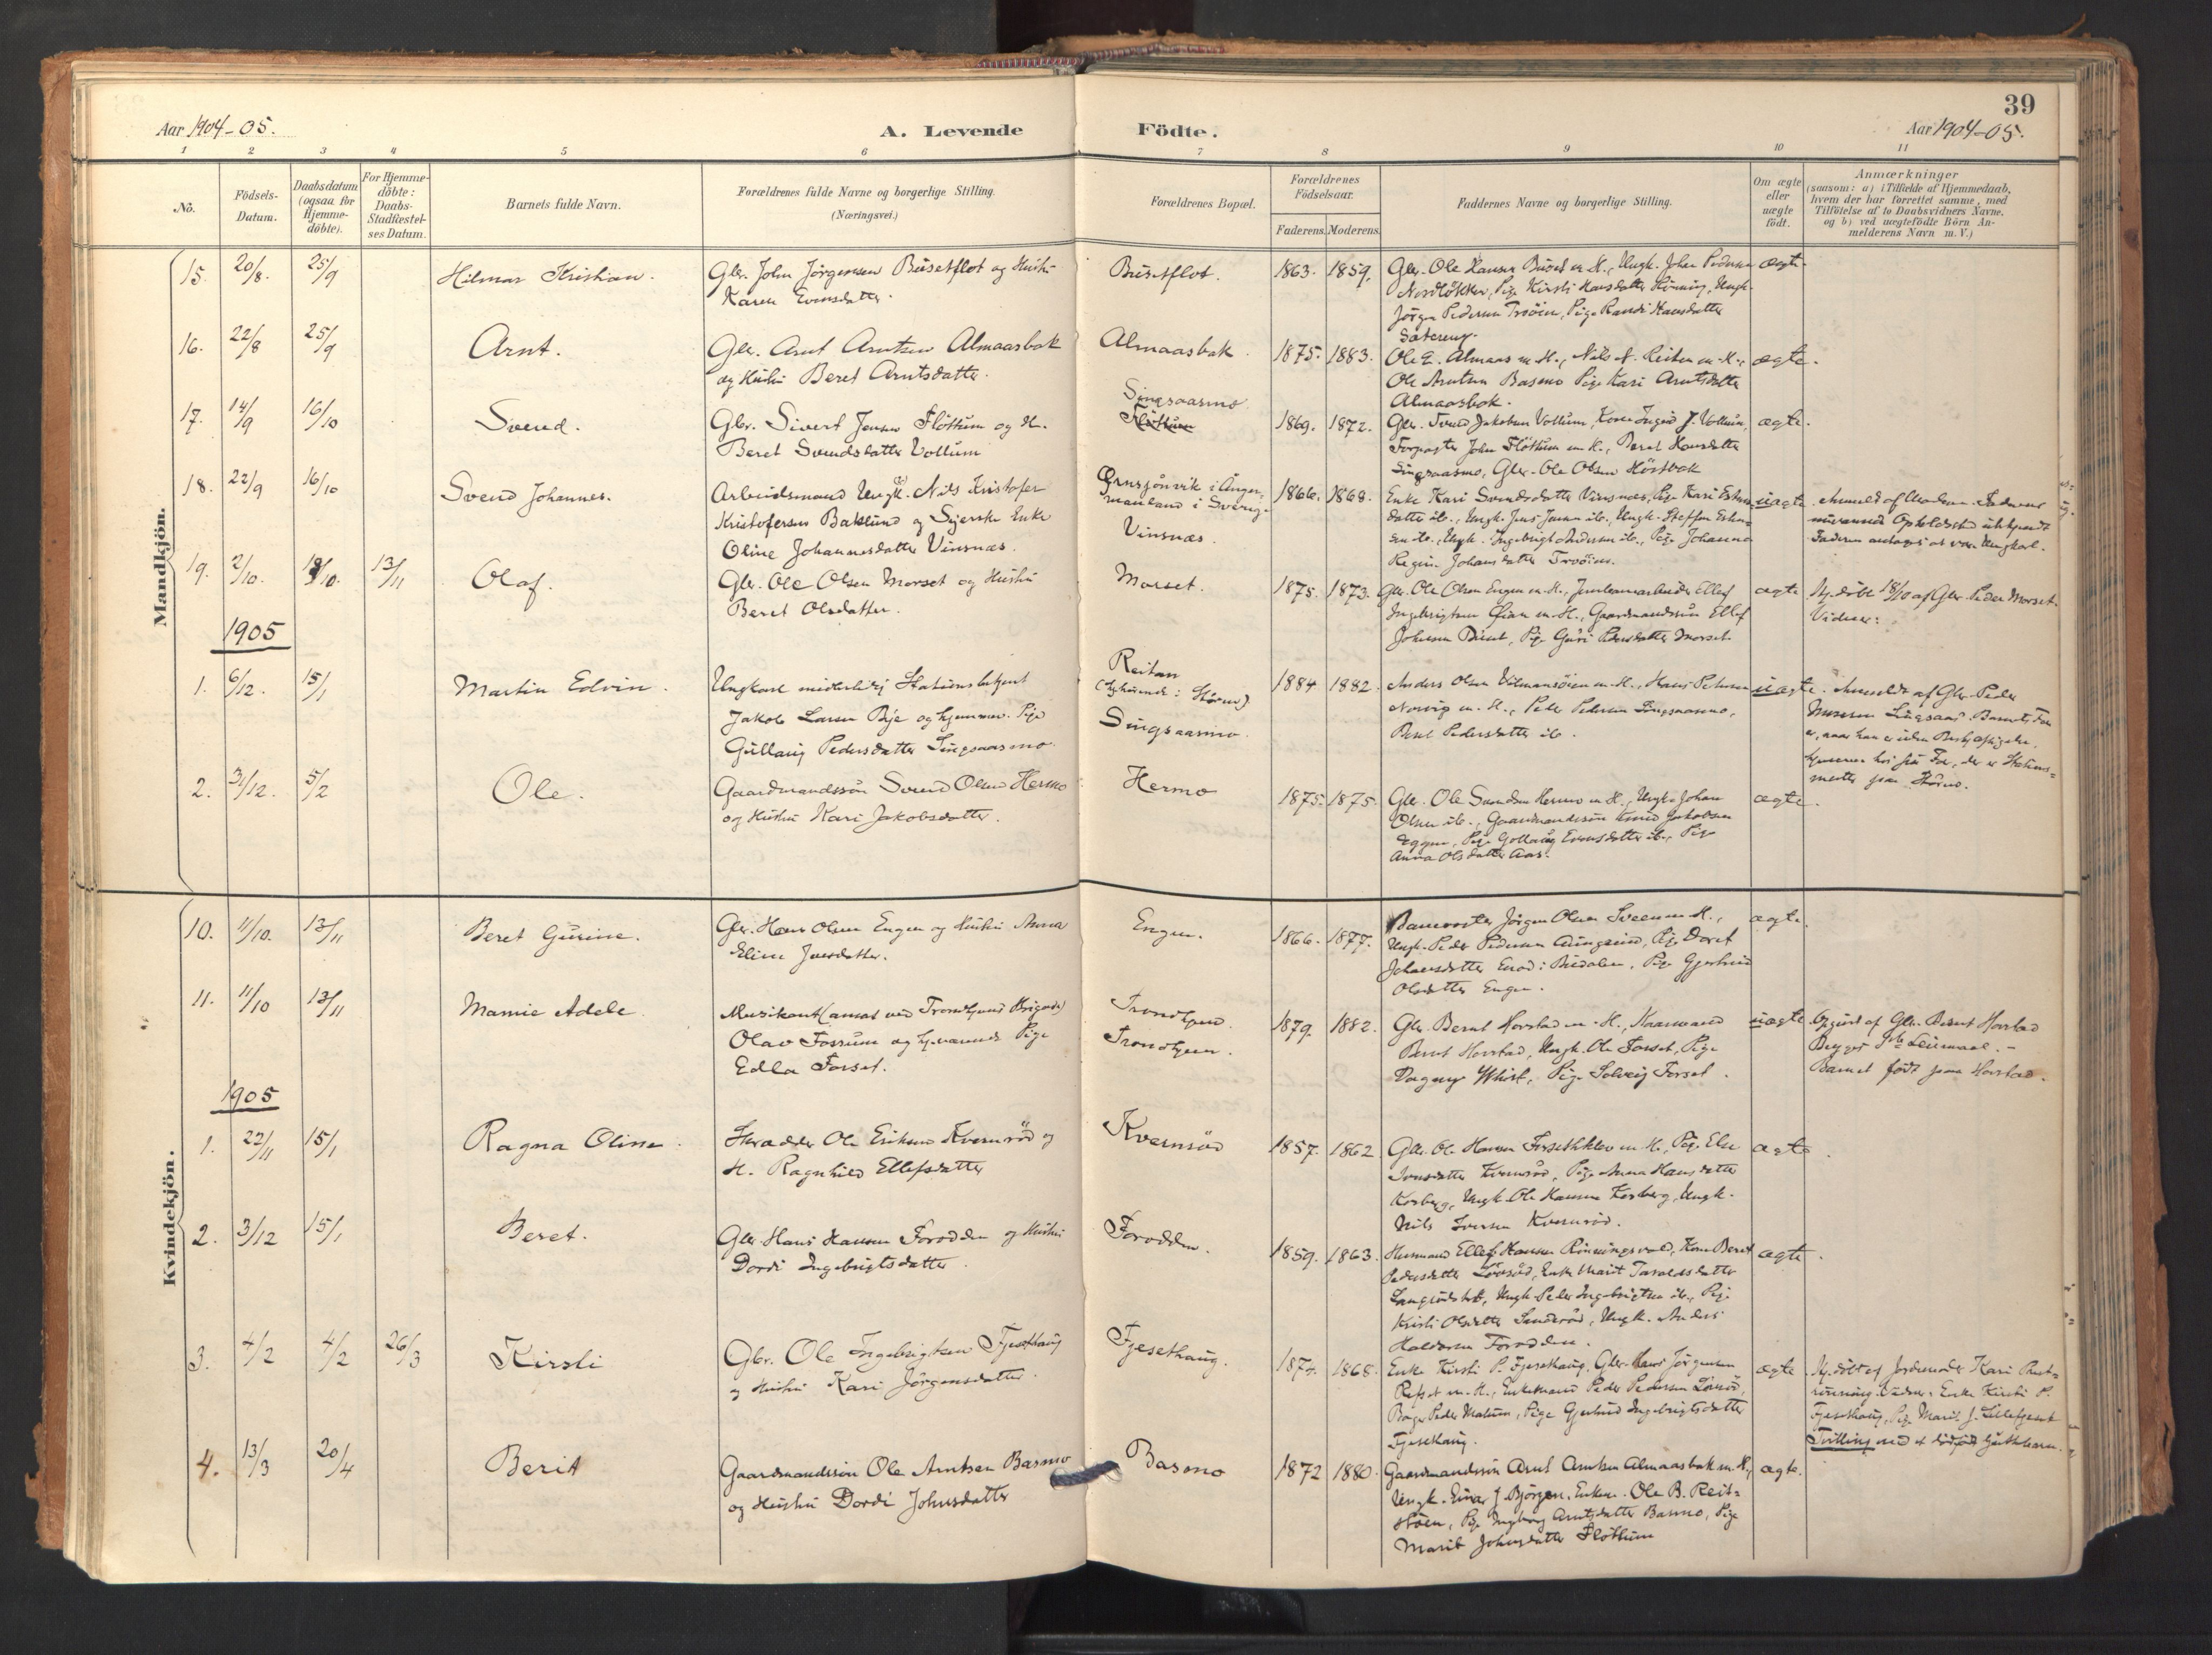 39
Aar 1904-05.
A. Levende Födte.
Aar 1904-05.
1 2 3 4 5 6 7 8 9 10 11
No.
Födsels-
Datum.
Daabsdatum
(ogsaa for
Hjemme-
döbte).
For Hjemme-
döbte:
Daabs-
Stadfæstel-
ses Datum.
Barnets fulde Navn.
Forældrenes fulde Navne og borgerlige Stilling.
(Næringsvei.)
Forældrenes Bopæl.
Forældrenes
Födselsaar.
Faderens. Moderens.
Faddernes Navne og borgerlige Stilling.
Om ægte
eller
uægte
födt.
Anmærkninger
(saasom: a) i Tilfælde af Hjemmedaab,
hvem der har forrettet samme, med
Tilföielse af to Daabsvidners Navne,
og b) ved uægtefödte Börn An-
melderens Navn m. V.)
Mandkjön.
15. 20/8. 25/9 Hilmar Kristian.
Gbr. John Jörgensen Busetflot og Hustru
Karen Evensdatter.
Busetflot. 1863. 1859.
Gbr. Ole Hansen Buset m. H., Ungk. Johan Pedersen
Nordløkken, Pige Kirsti Hansdatter Rönning, Ungk.
Jörgen Pedersen Troöien, Pige Randi Hansdatter
ægte.
16. 22/8 25/9 Arnt.
Gbr. Arnt Arntsen Almaasbak
og Hustru Beret Arntsdatter.
Almaasbak. 1875. 1883.
Ole E. Almaas m. H., Nils N. Reiten m. H.,
Ole Arntsen Basmo Pige Kari Arntsdatter
Almaasbak.
ægte.
17. 14/9 16/10 Svend.
Gbr. Sivert Jensen Flöttum og H.
Beret Svendsdatter Vollum
Singsaasmo
Flöttum
1869. 1872.
Gbr. Svend Jakobsen Vollum, Kone Ingrid J. Vollum,
Forpagter John Flöttum m. H., Beret Hansdatter
Singsaasmo, Gbr. Ole Olsen Höstbak
ægte.
18. 22/9 16/10 Svend Johannes.
Arbeidsmand Ungk. Nils Kristofer
Kristofersen Baklund og Syerske Enke
Oline Johannesdatter Vinsnæs.
Ørnsjönvik i Ånger-
manland i Sverig-
Vinsnæs.
1866. 1868.
Enke Kari Svendsdatter Vinsnæs, Pige Kari
datter ib., Ungk. Jens Jensen ib., Ungk. Steffen
sen ib., Ungk. Ingebrigt Andersen ib., Pige Johanna
Regine Johansdatter Troöien.
uægte.
Anmeldt af Moderen. Faderens
nuværende Opholdssted ubekjendt
Faderen antages at være Ungkarl.
19. 2/10. 18/10. 13/11 Olaf.
Gbr. Ole Olsen Morset og Hustru
Beret Olsdatter.
Morset. 1875. 1873.
Gbr. Ole Olsen Engen m. H., Jernbanearbeider Ellef
Ingebrigtsen Øian m. H., Gaardmandssön Ellef
Johnsen Buset, Pige Guri Pedersdatter Morset.
ægte
Hj.döbt 18/10 af Gbr. Peder Morset.
Vidner:
1905
1. 6/12. 15/1 Martin Edvin.
Ungkarl midlertidig Stationsbetjent
Jakob Larsen Bye og hjemmev. Pige
Gullaug Pedersdatter Singsaasmo.
Reitan
(hjhörende: Stören).
Singsaasmo.
1884 1882.
Anders Olsen Vilmansöien m. H., Hans Petersen
Norvig m. H., Peder Pedersen Singsaasmo,
Beret Pedersdatter ib.
uægte.
Anmeldt af Gbr. Peder
Monsen Singsaas. Barnets Far
er, naar han er uden Beskjæftigelse,
hjemme hos sin Far, der er Stations-
mester paa Stören.
2. 31/12. 5/2 Ole.
Gaardmandssön Svend Olsen Hermo
og Hustru Kari Jakobsdatter.
Hermo 1875. 1875.
Gbr. Ole Svendsen Hermo m. H., Ungk. Johan
Olsen ib., Gaardmandssön Knud Jakobsen
Eggen, Pige Gollaug Evensdatter ib., Pige
Anna Olsdatter Aas.
ægte.
Kvindekjön.
10. 11/10. 13/11 Beret Gurine.
Gbr. Hans Olsen Engen og Hustru Anna
Eline Iversdatter.
Engen. 1866. 1877.
Banevogter Jörgen Olsen Sveen m. H.,
Ungk. Peder Pedersen Aungreind, Pige Doret
Johansdatter Enod i Budalen, Pige Gjertrud
Olsdatter Engen.
ægte.
11. 11/10 13/11 Mamie Adele
Musikant (ansat ved Trondhjems Brigade)
Olav Fossum og hj.værende Pige
Edla Forset.
Trondhjem.
Trondhjem.
1879. 1882.
Gbr. Bernt Horstad m. H., Kaarmand
Bernt Horstad, Ungk. Ole Forset, Pige
Dagny Whist, Pige Solveig Forset.
uægte
Opgivet af Gbr. Bernt Horstad
Begges 1ste Leiermaal. -
Barnet födt paa Horstad.
1905
1. 22/11 15/1 Ragna Oline.
Skrædder Ole Eriksen Kvernröd og
H. Ragnhild Ellefsdatter
Kvernröd 1857. 1862
Gbr. Ole Hansen Forsethklev m. H., Pige Else
Ivarsdatter Kvernröd, Pige Anna Hansdatter
Korberg, Ungk. Ole Hansen Korberg, Ungk.
Nils Iversen Kvernröd.
ægte.
2. 3/12 15/1 Beret.
Gbr. Hans Hansen Forodden og Hustru
Dordi Ingebrigtsdatter.
Forodden. 1859. 1863.
Husmand Ellef Hansen Rönningsvold, Kone Beret
Pedersdatter Lönsöd, Enke Marit Taraldsdatter
Ungk. Peder Ingebrigtsen ib., Pige
Kirsti Olsdatter Sanderöd, Ungk. Anders
Haldorsen Forodden.
ægte.
3. 4/2 4/2 26/3 Kirsti
Gbr. Ole Ingebrigtsen Fjesethaug
og Hustru Kari Jörgensdatter.
Fjesethaug. 1874. 1868.
Enke Kirsti P. Fjesethaug, Gbr. Hans Jörgensen
Refset m. H., Enkemand Peder Pedersen Lönöd,
Bager Peder Malum, Pige Gjertrud Ingebrigtsdatter
Fjesethaug.
ægte
Hj.döbt af Jordemoder Kari
Vidner: Enke Kirsti P.
Fjesethaug, Pige Marit J. Lillefjeset
Tvilling med et dödfödt Gutebarn.
4. 13/3 20/4 Berit
Gaardmandssön Ole Arntsen Basmo
og Hustru Dordi Johnsdatter
Basmo 1872 1880.
Gaardmandssön Arnt Arntsen Almaasbak m. H.,
Ungk. Einar J. Bjørgen, Enkem. Ole B. Reit-
stöen, Pige Ingeborg Arntsdatter Basmo, Pige
Marit Johnsdatter Flöttum
ægte.